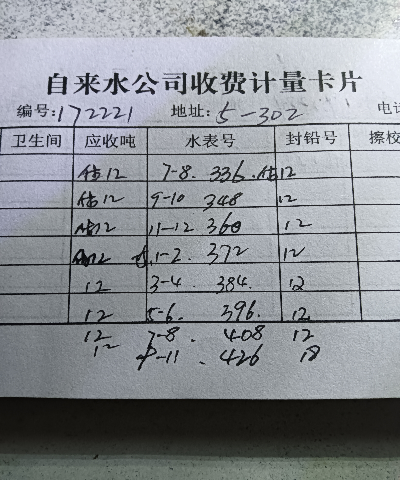 自来水公司收费计量卡片
编号:172221 地址:5-302 电话
卫生间 应收吨 水表号 封铅号 擦校
估12 7-8. 336. 估12
估12 9-10 348 12
估12 11-12 360 12
12 1-2. 372 12
12 3-4. 384. 12
12 5-6. 396. 12
12 7-8. 408 12
12 9-11. 426 18